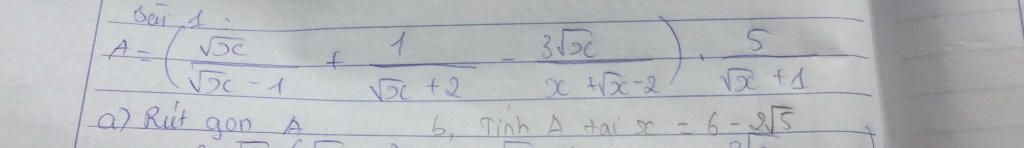 Bài 1.
A = ( √x / (√x - 1) + 1 / (√x + 2) - 3√x / (x + √x - 2) ) . 5 / (√x + 1)
a) Rút gọn A b, Tính A tại x = 6 - 2√5